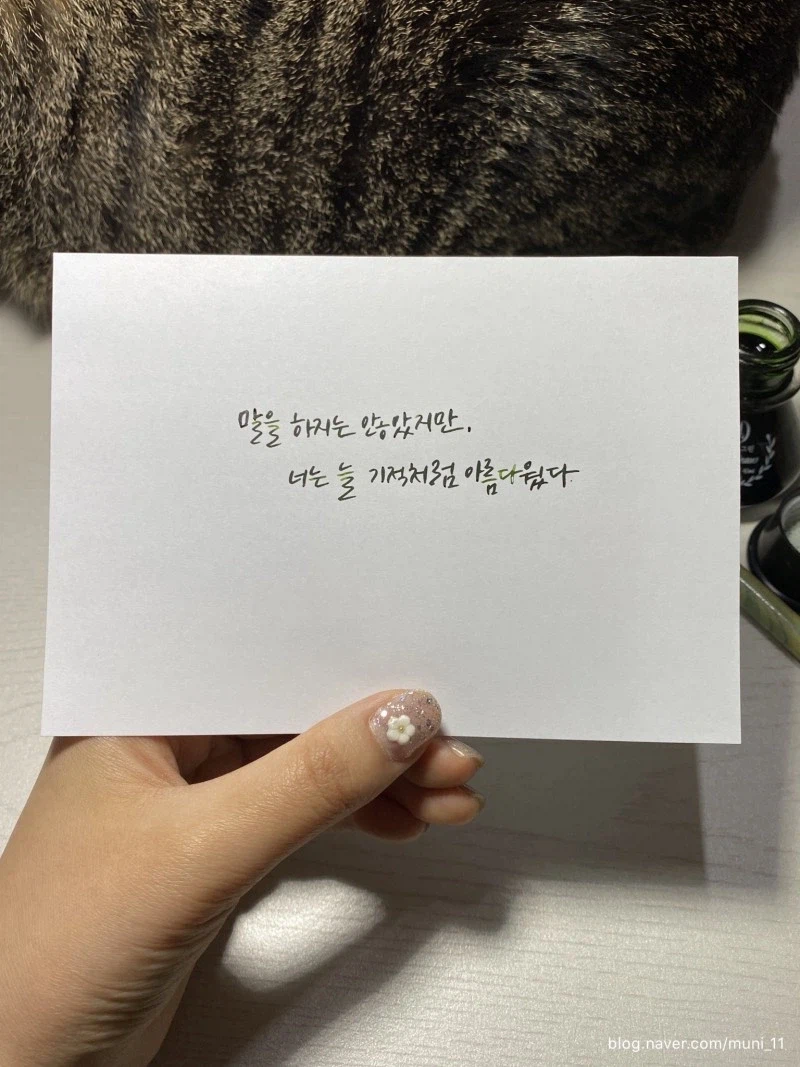 말을 하지는 않았지만,
너는 늘 기적처럼 아름다웠다.
blog.naver.com/muni_11